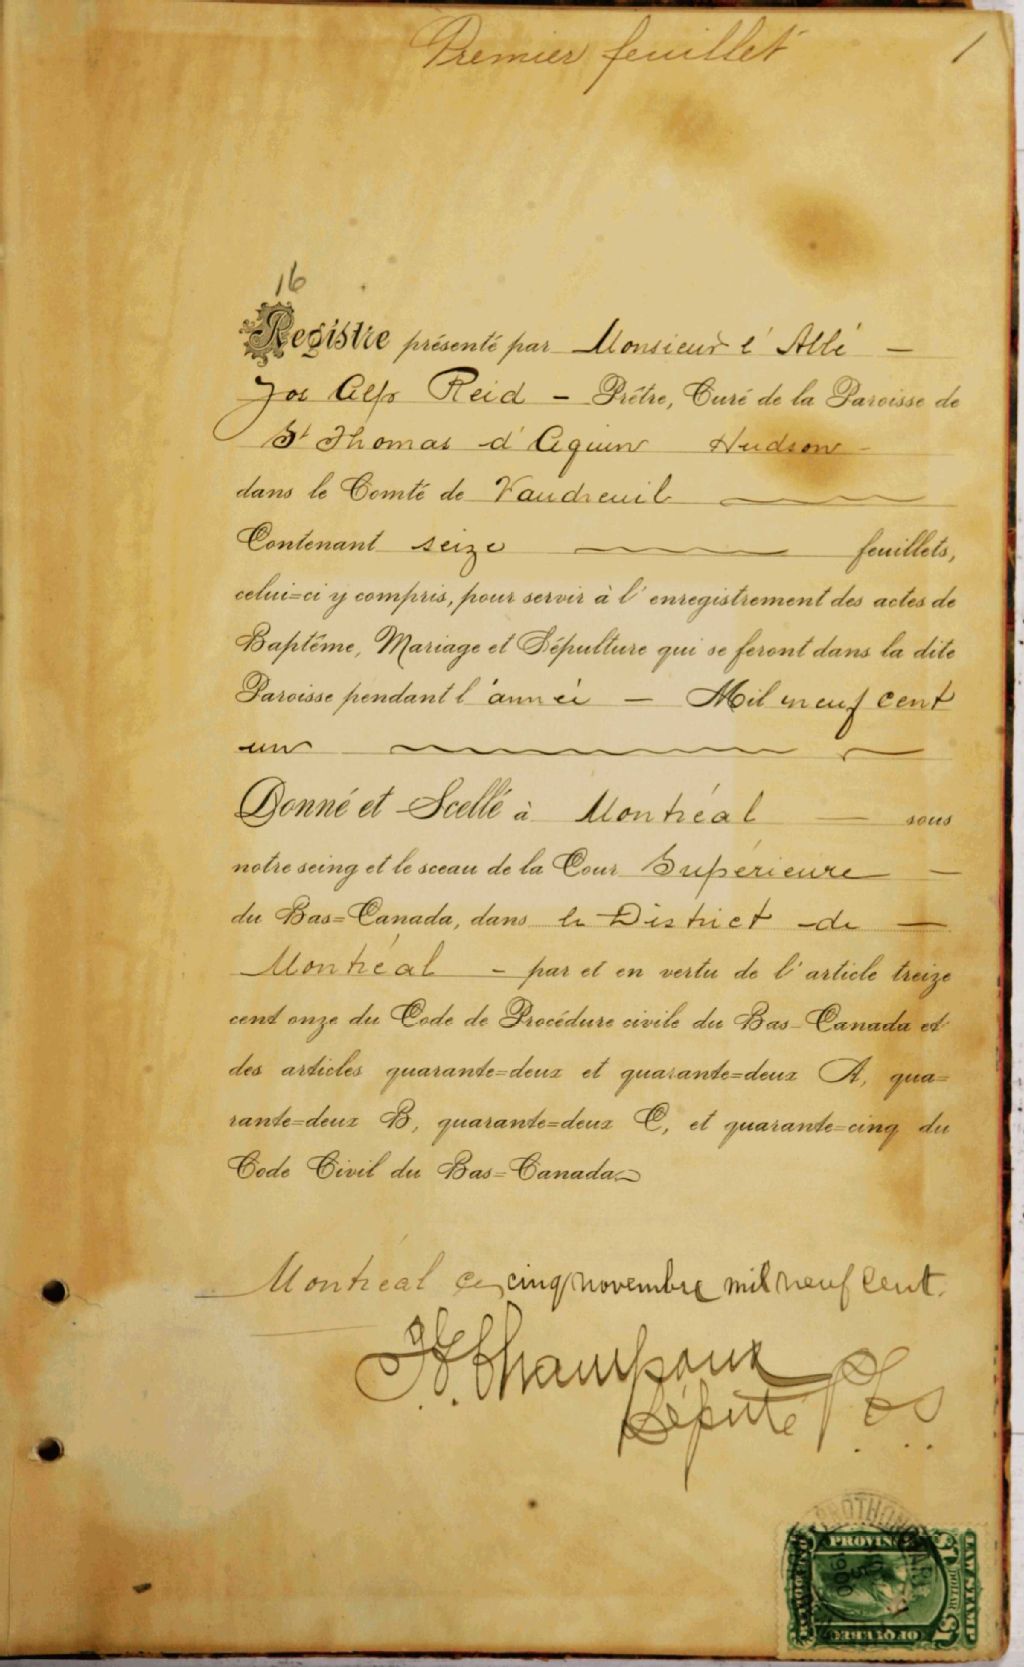 Premier feuillet 1
16
Registre présenté par Monsieur l'Abbé —
Jos Alp Reid — Prêtre, Curé de la Paroisse de
St Thomas d'Aquin Hudson —
dans le Comté de Vaudreuil
Contenant seize feuillets,
celui=ci y compris, pour servir à l'enregistrement des actes de
Baptême, Mariage et Sépulture qui se feront dans la dite
Paroisse pendant l'année — Mil neuf cent
un
Donné et Scellé à Montréal — sous
notre seing et le sceau de la Cour Supérieure —
du Bas=Canada, dans le District de —
Montréal — par et en vertu de l'article treize
cent onze du Code de Procédure civile du Bas-Canada et
des articles quarante=deux et quarante=deux A, qua=
rante=deux B, quarante=deux C, et quarante=cinq du
Code Civil du Bas=Canada
Montréal ce cinq novembre mil neuf cent.
Champoux
Député P.C.S.
PROTHONOTARY
5
1900
PROVINCE
OF QUEBEC
LAW STAMP
$1
DOLLAR